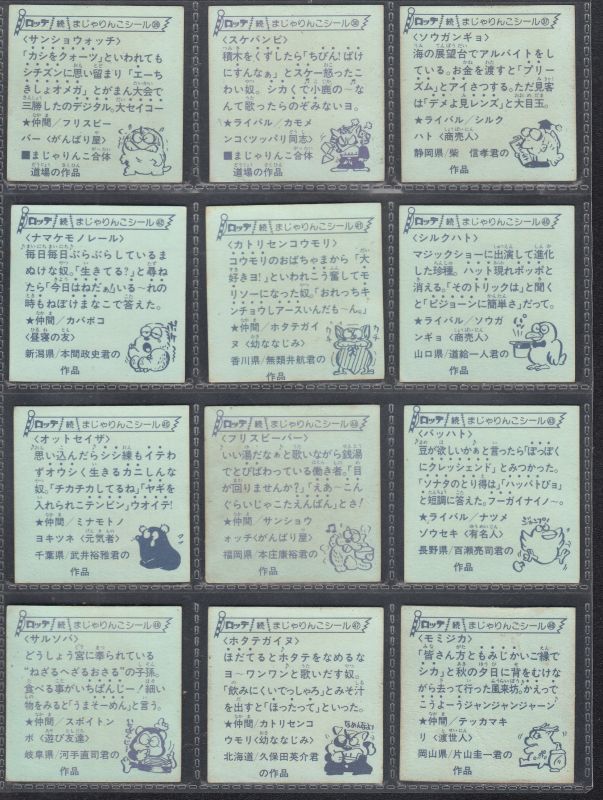 ロッテ 続 まじゃりんこシール㉙
〈サンショウォッチ〉
「カシをクォーツ」といわれても
シチズンに思い留まり「エーちゃ
きしょオメガ」とがまん大会で
三勝したのデジタル。大セイコー
★仲間/フリスビー
バー〈がんばり屋〉
■まじゃりんこ合体
道場の作品
ロッテ 続 まじゃりんこシール
〈スケバンビ〉
積木をくずしたら「ちびん!ばけ
にすんなぁ」とスケー怒ったこ
わい奴。シカくで小鹿の〜な
んて歌ったらのぞみないヨ。
★仲間/カモメ
ンコ〈ツッパリ同志〉
■まじゃりんこ合体
道場の作品
ロッテ 続 まじゃりんこシール
〈ソウガンギョ〉
海の展望台でアルバイトをし
ている。お金を渡すと「プリー
ズム」とアイさつする。ただ見客
は「デメよ見レンズ」と大目玉。
★ライバル/シルク
ハト〈商売人〉
静岡県/柴 信孝君の
作品
ロッテ 続 まじゃりんこシール
〈ナマケモノレール〉
毎日毎日ぶらぶらしているま
ぬけな奴。「生きてる?」と尋ね
たら「今日はねだぁ!いる〜れの
時もねぼけまなこで答えた。
★仲間/カバボコ
〈昼寝の友〉
新潟県/本間政史君の
作品
ロッテ 続 まじゃりんこシール㊶
〈カトリセンコウモリ〉
コウモリのおばちゃまから「大
好きヨ!」といわれこう奮してモ
リソーになった奴。「おれっちキ
ンチョウしアースいんだも〜ん。」
★仲間/ホタテガイ
ヌ〈幼ななじみ〉
香川県/無類井航君の
作品
ロッテ 続 まじゃりんこシール
〈シルクハト〉
マジックショーに出演して進化
した珍種。ハット現れポッポと
消える。「そのトリックは」と聞く
と「ビジョーンに簡単さ」だって。
★ライバル/ソウガ
ンギョ〈商売人〉
山口県/道絵一人君の
作品
ロッテ 続 まじゃりんこシール
〈オットセイザ〉
思い込んだらシシ練もイテわ
ずオウシく生きるカニしんな
奴。「チカチカしてるね」「ヤギを
入れられニテンビン」ウオイテ!
★仲間/ミナモトノ
ヨキツネ〈元気者〉
千葉県/武井裕雅君の
作品
ロッテ 続 まじゃりんこシール
〈フリスビーバー〉
いい湯だなぁと歌いながら銭湯
でとびばわっている働き者。「目
が回りませんか?」「えあ〜こん
ぐらいじゃこたえんばん」とさ!
★仲間/サンショウ
ォッチ〈がんばり屋〉
福岡県/本庄康裕君の
作品
ロッテ 続 まじゃりんこシール
〈バッハト〉
豆が欲しいかぁと言ったら「ぼっぽく
にクレッシェンド」とみつかった。
「ソナタのとり得は」「ハッバトびョ」
と短調に答えた。フーガイナイノ〜。
★ライバル/ナツメ
ゾウセキ〈有名人〉
長野県/百瀬亮司君の
作品
ロッテ 続 まじゃりんこシール
〈サルソバ〉
どうしょう宮に奉られている
“ねざるへざるおさる”の子孫。
食べる事がいちばんじー!細い
物をみると「うまそーめん」と言う。
★仲間/スポイトン
ボ〈遊び友達〉
岐阜県/河手直司君の
作品
ロッテ 続 まじゃりんこシール㊼
〈ホタテガイヌ〉
ほだてるとホタテをなめるな
ヨ〜ワンワンと歌いだす奴。
「飲みにくいでっしゃろ」とみそ汁
を出すと「ほったって」といった。
★仲間/カトリセンコ
ウモリ〈幼ななじみ〉
北海道/久保田英介君
の作品
ロッテ 続 まじゃりんこシール㊽
〈モミジカ〉
「皆さん方ともみじかいご縁で
シカ」と秋の夕日に背をむけな
がら去って行った風来坊。かえって
こうようジャンジャンジャーン
★仲間/テッカマキ
リ〈渡世人〉
岡山県/片山圭一君の
作品